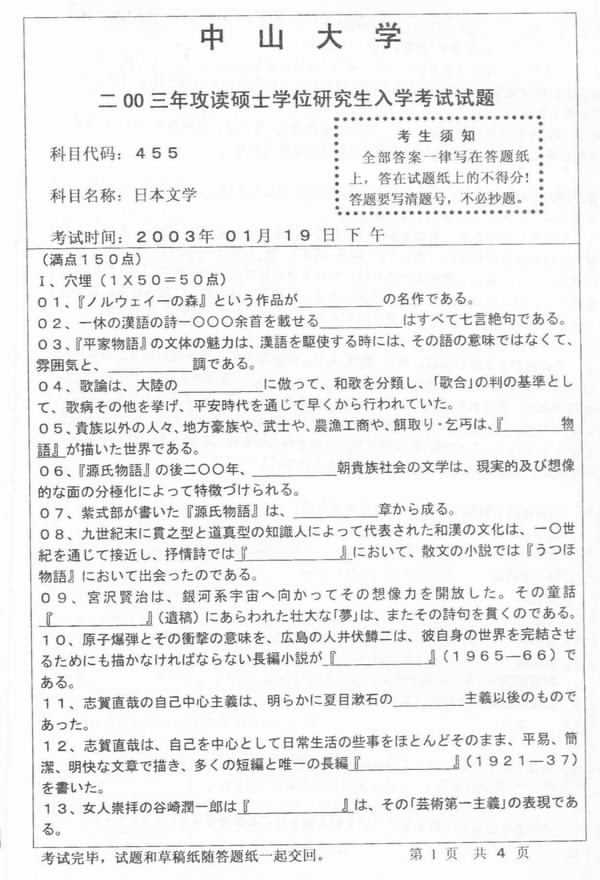 中山大学
二00三年攻读硕士学位研究生入学考试试题
科目代码：455
科目名称：日本文学
考试时间：2003年 01月 19日下午
考生须知
全部答案一律写在答题纸
上，答在试题纸上的不得分！
答题要写清题号，不必抄题。
(満点150点)
I、穴埋（1X50＝50点）
01、『ノルウェイーの森』という作品が__________の名作である。
02、一休の漢語の詩一〇〇〇余首を載せる__________はすべて七言絶句である。
03、『平家物語』の文体の魅力は、漢語を駆使する時には、その語の意味ではなくて、
雰囲気と、__________調である。
04、歌論は、大陸の__________に倣って、和歌を分類し、「歌合」の判の基準とし
て、歌病その他を挙げ、平安時代を通じて早くから行われていた。
05、貴族以外の人々、地方豪族や、武士や、農漁工商や、餌取り・乞丐は、『________物
語』が描いた世界である。
06、『源氏物語』の後二〇〇年、__________朝貴族社会の文学は、現実的及び想像
的な面の分極化によって特徴づけられる。
07、紫式部が書いた『源氏物語』は、__________章から成る。
08、九世紀末に貫之型と道真型の知識人によって代表された和漢の文化は、一〇世
紀を通じて接近し、抒情詩では『____________』において、散文の小説では『うつほ
物語』において出会ったのである。
09、宮沢賢治は、銀河系宇宙へ向かってその想像力を開放した。その童話
『____________』（遺稿）にあらわれた壮大な「夢」は、またその詩句を貫くのである。
10、原子爆弾とその衝撃の意味を、広島の人井伏鱒二は、彼自身の世界を完結させ
るためにも描かなければならない長編小説が『____________』（1965—66）で
ある。
11、志賀直哉の自己中心主義は、明らかに夏目漱石の________主義以後のもので
あった。
12、志賀直哉は、自己を中心として日常生活の些事をほとんどそのまま、平易、簡
潔、明快な文章で描き、多くの短編と唯一の長編『____________』（1921—37）
を書いた。
13、女人崇拝の谷崎潤一郎は『____________』は、その「芸術第一主義」の表現であ
る。
考试完毕，试题和草稿纸随答题纸一起交回。
第 1 页 共 4 页